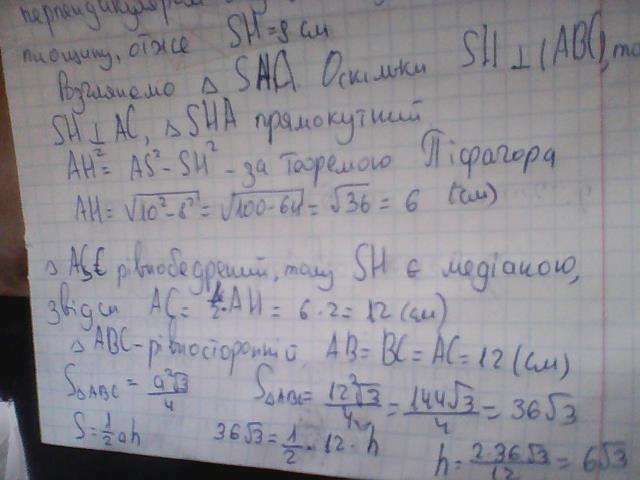 перпендикуляром
площину, отже SH = 8 см
Розглянемо △ SAC. Оскільки SH ⊥ (ABC), то
SH ⊥ AC, △ SHA прямокутний
AH² = AS² - SH² - за теоремою Піфагора
AH = √10² - 8² = √100 - 64 = √36 = 6 (см)
△ ASC рівнобедрений, тому SH є медіаною,
звідси AC = 2·AH = 6 · 2 = 12 (см)
△ ABC - рівносторонній AB = BC = AC = 12 (см)
S△ABC = a²√3/4 S△ABC = 12²√3/4 = 144√3/4 = 36√3
S = 1/2 ah 36√3 = 1/2 · 12 · h h = 2·36√3/12 = 6√3